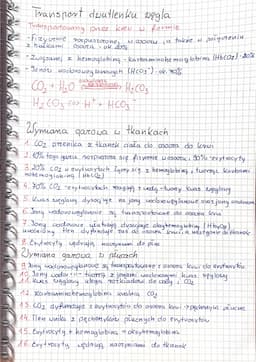 Transport dwutlenku węgla
Transportowany przez krew w formie
- Fizycznie rozpuszczonej w osoczu, a także w połączeniu
z białkami osocza - ok. 20%
- Związanej z hemoglobiną - karbaminohemoglobina (HbCO2) - 20%
- Jonów wodorowęglanowych (HCO3-) - ok. 70%
CO2 + H2O H2CO3
H2CO3 <-> H+ + HCO3-
Wymiana gazowa w tkankach
1. CO2 przenika z tkanek ciała do osocza do krwi
2. 10% tego gazu rozpuszcza się fizycznie w osoczu, 90% - erytrocyty
3. 20% CO2 w erytrocytach łączy się z hemoglobiną, tworząc karbamino-
hemoglobinę (HbCO2)
4. 70% CO2 - erytrocytach reagują z wodą - tworzy kwas węglowy
5. Kwas węglowy dysocjuje na jony wodorowęglanowe oraz jony wodorowe
6. Jony wodorowęglanowe są transportowane do osocza krwi
7. Jony wodorowe ułatwiają dysocjację oksyhemoglobiny (HbO2)
uwolniony tlen dyfunduje do osocza krwi, a następnie do tkanek
8. Erytrocyty wędrują naczyniami do płuc
Wymiana gazowa w płucach
9. Jony wodorowęglanowe są transportowane z osocza krwi do erytrocytów
10. Jony wodorowe tworzą z jonami wodorowymi kwas węglowy
11. Kwas węglowy ulega rozkładowi do wody i CO2
12. Karbaminohemoglobina uwalnia CO2
13. CO2 dyfunduje z erytrocytów do osocza krwi → pęcherzyki płucne
14. Tlen wnika z pęcherzyków płucnych do erytrocytów
15. Erytrocyty + hemoglobina → oksyhemoglobina
16. Erytrocyty wędrują naczyniami do tkanek